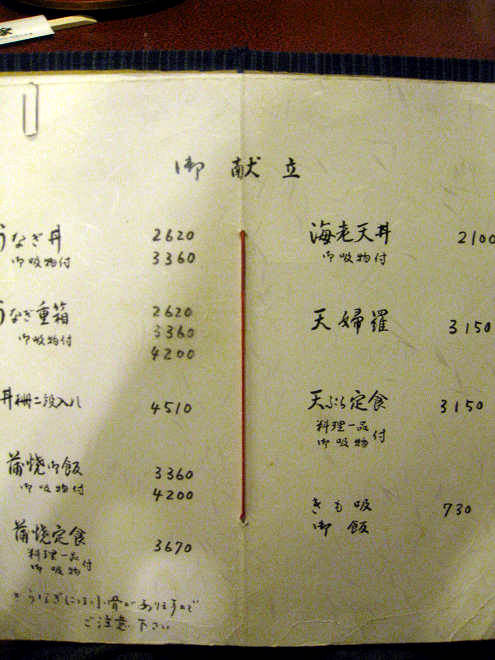 御献立
うなぎ丼 2620
御吸物付 3360
うなぎ重箱 2620
御吸物付 3360
4200
丼柵二段入れ 4510
蒲焼御飯 3360
御吸物付 4200
蒲焼定食 3670
料理一品
御吸物付
うなぎには小骨がありますので
ご注意下さい
海老天丼 2100
御吸物付
天婦羅 3150
天ぷら定食 3150
料理一品
御吸物付
きも吸 730
御飯